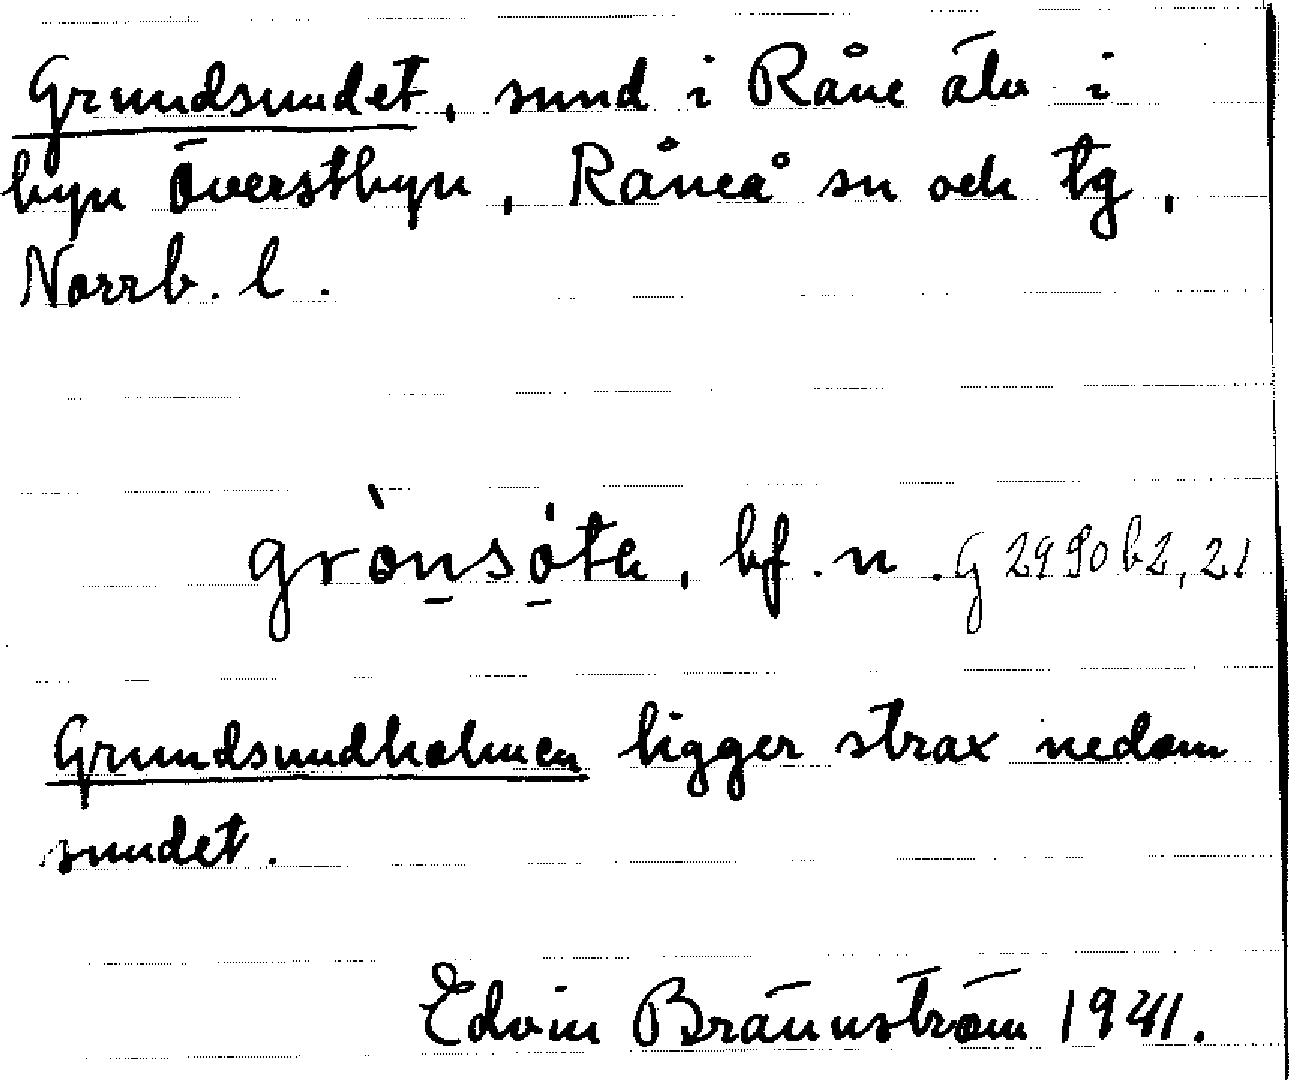 Grundsundet, sund i Råne älv i
byn Överstbyn, Råneå sn och tg,
Norrb. l.
grònsóte, bf. n. G 2990 b2, 21
Grundsundholmen ligger strax nedom
sundet.
Edvin Brännström 1941.